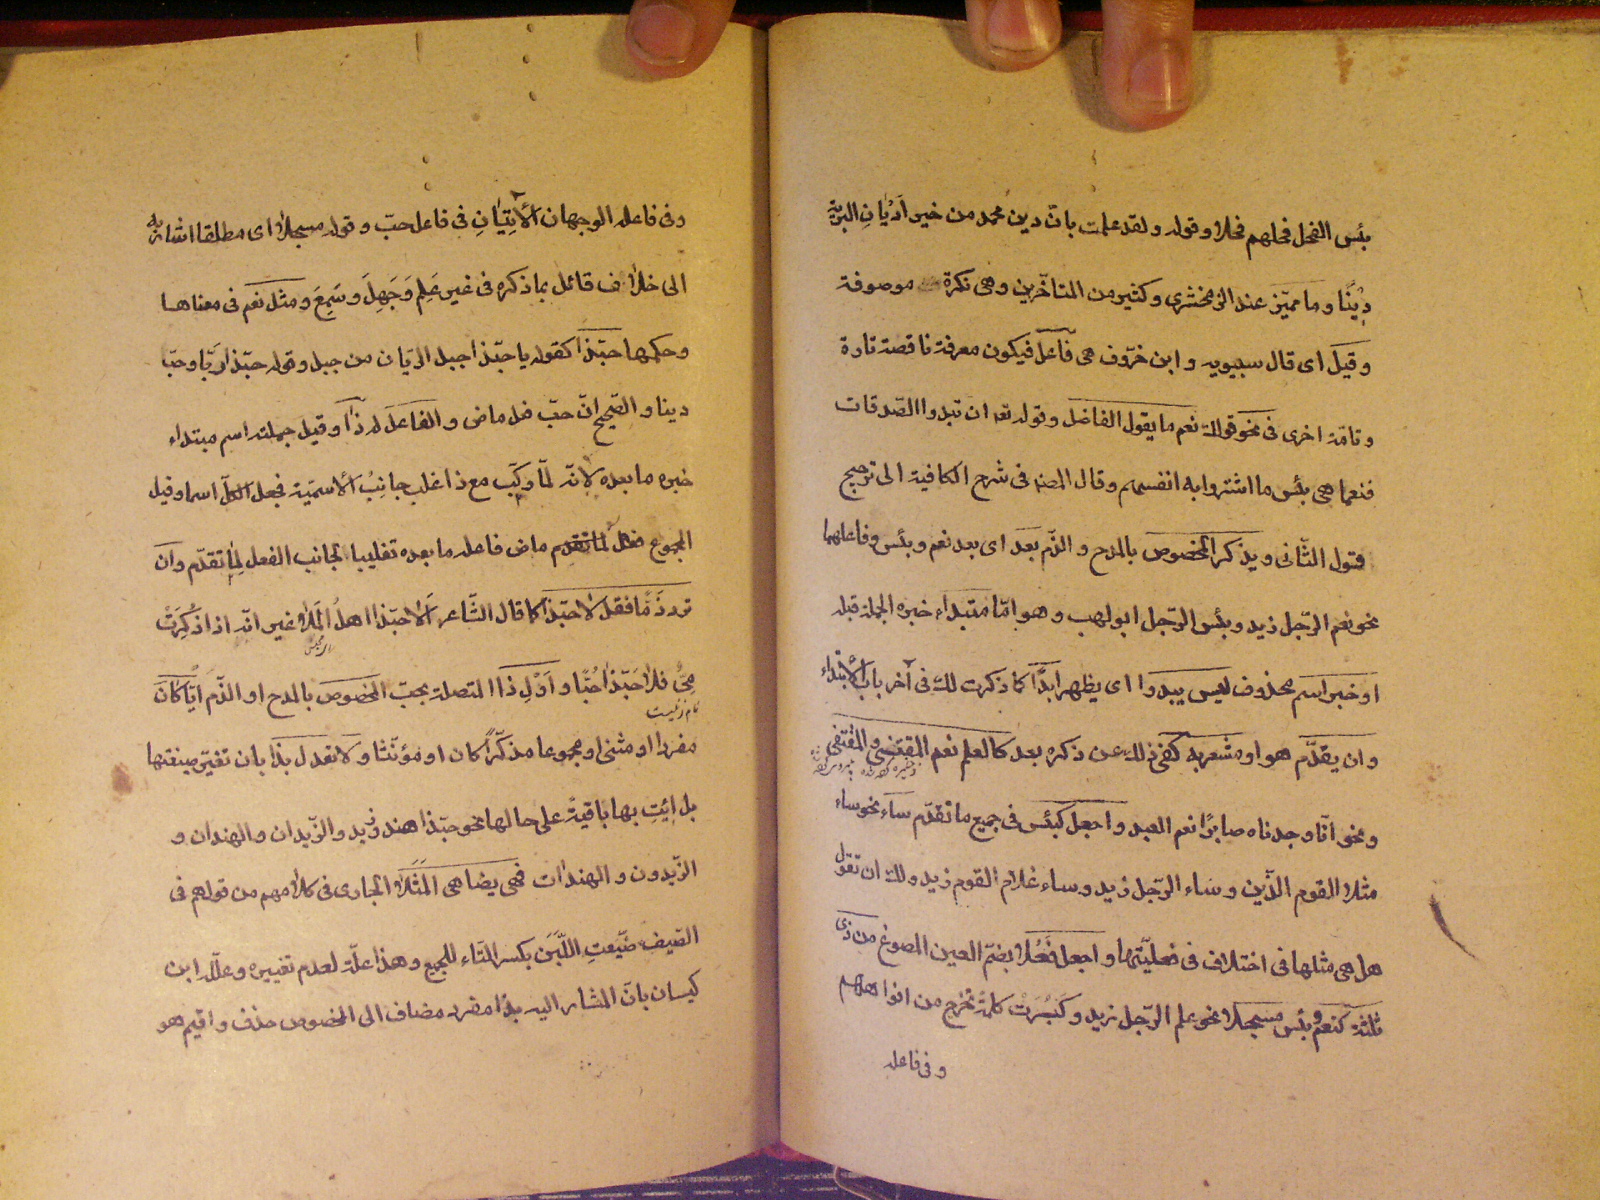 بئس الفحل فحلهم فحلا وقوله ولقد علمت بانّ دين محمد من خير اديان البريّة
دينًا وما مميّز عند الزمخشري وكثير من المتاخّرين وهى نكرة موصوفة
وقيل اى قال سيبويه وابن خرّوف هى فاعل فيكون معرفة ناقصة تارة
وتامّة اخرى فى نحو قولك نعم ما يقول الفاضل وقوله تع ان تبدوا الصّدقات
فنعما هى بئس ما اشتروا به انفسهم وقال المصنه فى شرح الكافية الى ترجيح
قتول الثّانى ويذكر المخصوص بالمدح والذّم بعد اى بعد نعم وبئس وفاعلهما
نحو نعم الرّجل زيد وبئس الرّجل ابو لهب وهو امّا مبتداء خبره الجملة قبله
او خبر اسم محذوف ليس يبدوا اى يظهر ابدًا كما ذكرت لك فى آخر باب الابتداء
وان يقدّم هو او مشعر به كفى ذلك عن ذكره بعد كالعلم نعم المقتنى والمقتفى
ونحو انّا وجدناه صابرًا نعم العبد واجعل كبئس فى جميع ما تقدّم ساء نحو ساء
مثلا القوم الذّين وساء الرّجل زيد وساء غلام القوم زيد ولك ان تقول
هل هى مثلها فى اختلاف فى فعليّتها واجعل فعُلا بضمّ العين المصوغ من ذى
ثلثة كنعم وبئس مسجلا نحو علم الرّجل زيد وكَبُرَتْ كلمةً تخرج من افواههم
وفى فاعله
وفى فاعله الوجهان الآتِيَانِ فى فاعل حبّ وقوله مسجلا اى مطلقا اشار به
الى خلاف قائل بما ذكره فى غير عَلِمَ وَجَهِلَ وسَمِعَ ومثل نعم فى معناها
وحكمها حبّذا كقوله يا حبّذا جبل الرّيان من جبل وقوله حبّذا ربّا وحبّ
دينا والصّحيح انّ حبّ فعل ماض والفاعل له ذا وقيل جملته اسم مبتداء
خبره ما بعده لانّه لمّا ركّب مع ذا غلب جانِبُ الاسميّة فجعل الكلّ اسما وقيل
المجموع فعل ماض فاعله ما بعده تغليبا لجانب الفعل لما تقدّم وان
ترد ذمًّا فقل لا حبّذا كما قال الشّاعر اَلا حبّذا اهلُ المَلا غير انّه اذا ذُكِرَتْ
مىٌّ فلا حَبّذا حُبًّا وَاَوْلِ ذا المتصلة بحبّ المخصوص بالمدح او الذّم ايًّا كان
مفردا او مثنى او مجموعا مذكّرًا كان او مؤنّثا ولا تعدل بذا بان تغيّر صيغتها
بل اِئتِ بها باقيةً على حالها نحو حبّذا هند وزيد والزّيدان والهندان و
الزّيدون والهندات فهى يضاهى المَثَلا الجارى فى كلامهم من قولهم فى
الصّيف ضَيّعتِ اللّبَن بكسر التّاء للجميع وهذا علّة لعدم تغييره وعلّل ابن
كيسان بانّ المشار اليه بذا مفرد مضاف الى المخصوص حذف واقيم هو